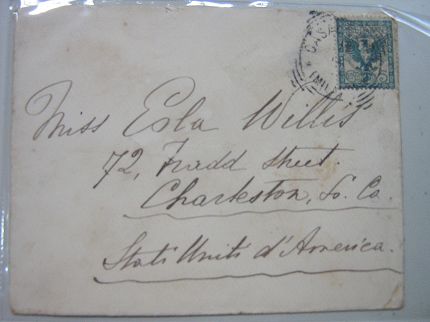 Miss Esla Willis
72, Tradd Street.
Charleston, So. Ca.
Stati Uniti d'America.